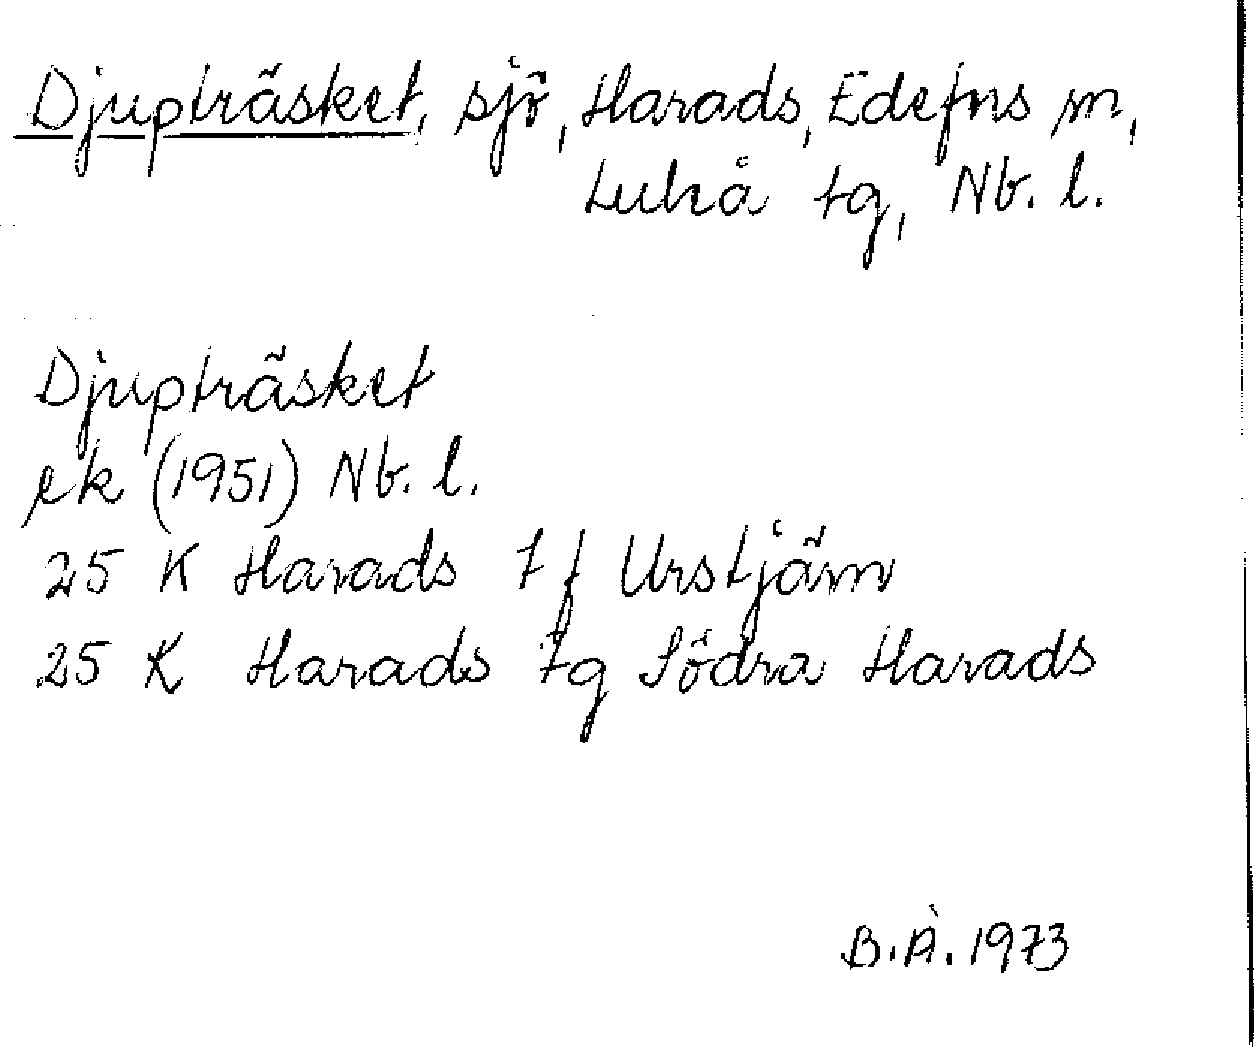 Djupträsket, sjö, Harads, Edefors sn,
Luleå tg, Nb. l.
Djupträsket
ek (1951) Nb. l.
25 K Harads 7 f Urstjärn
25 K Harads 7g Södra Harads
B.Å. 1973